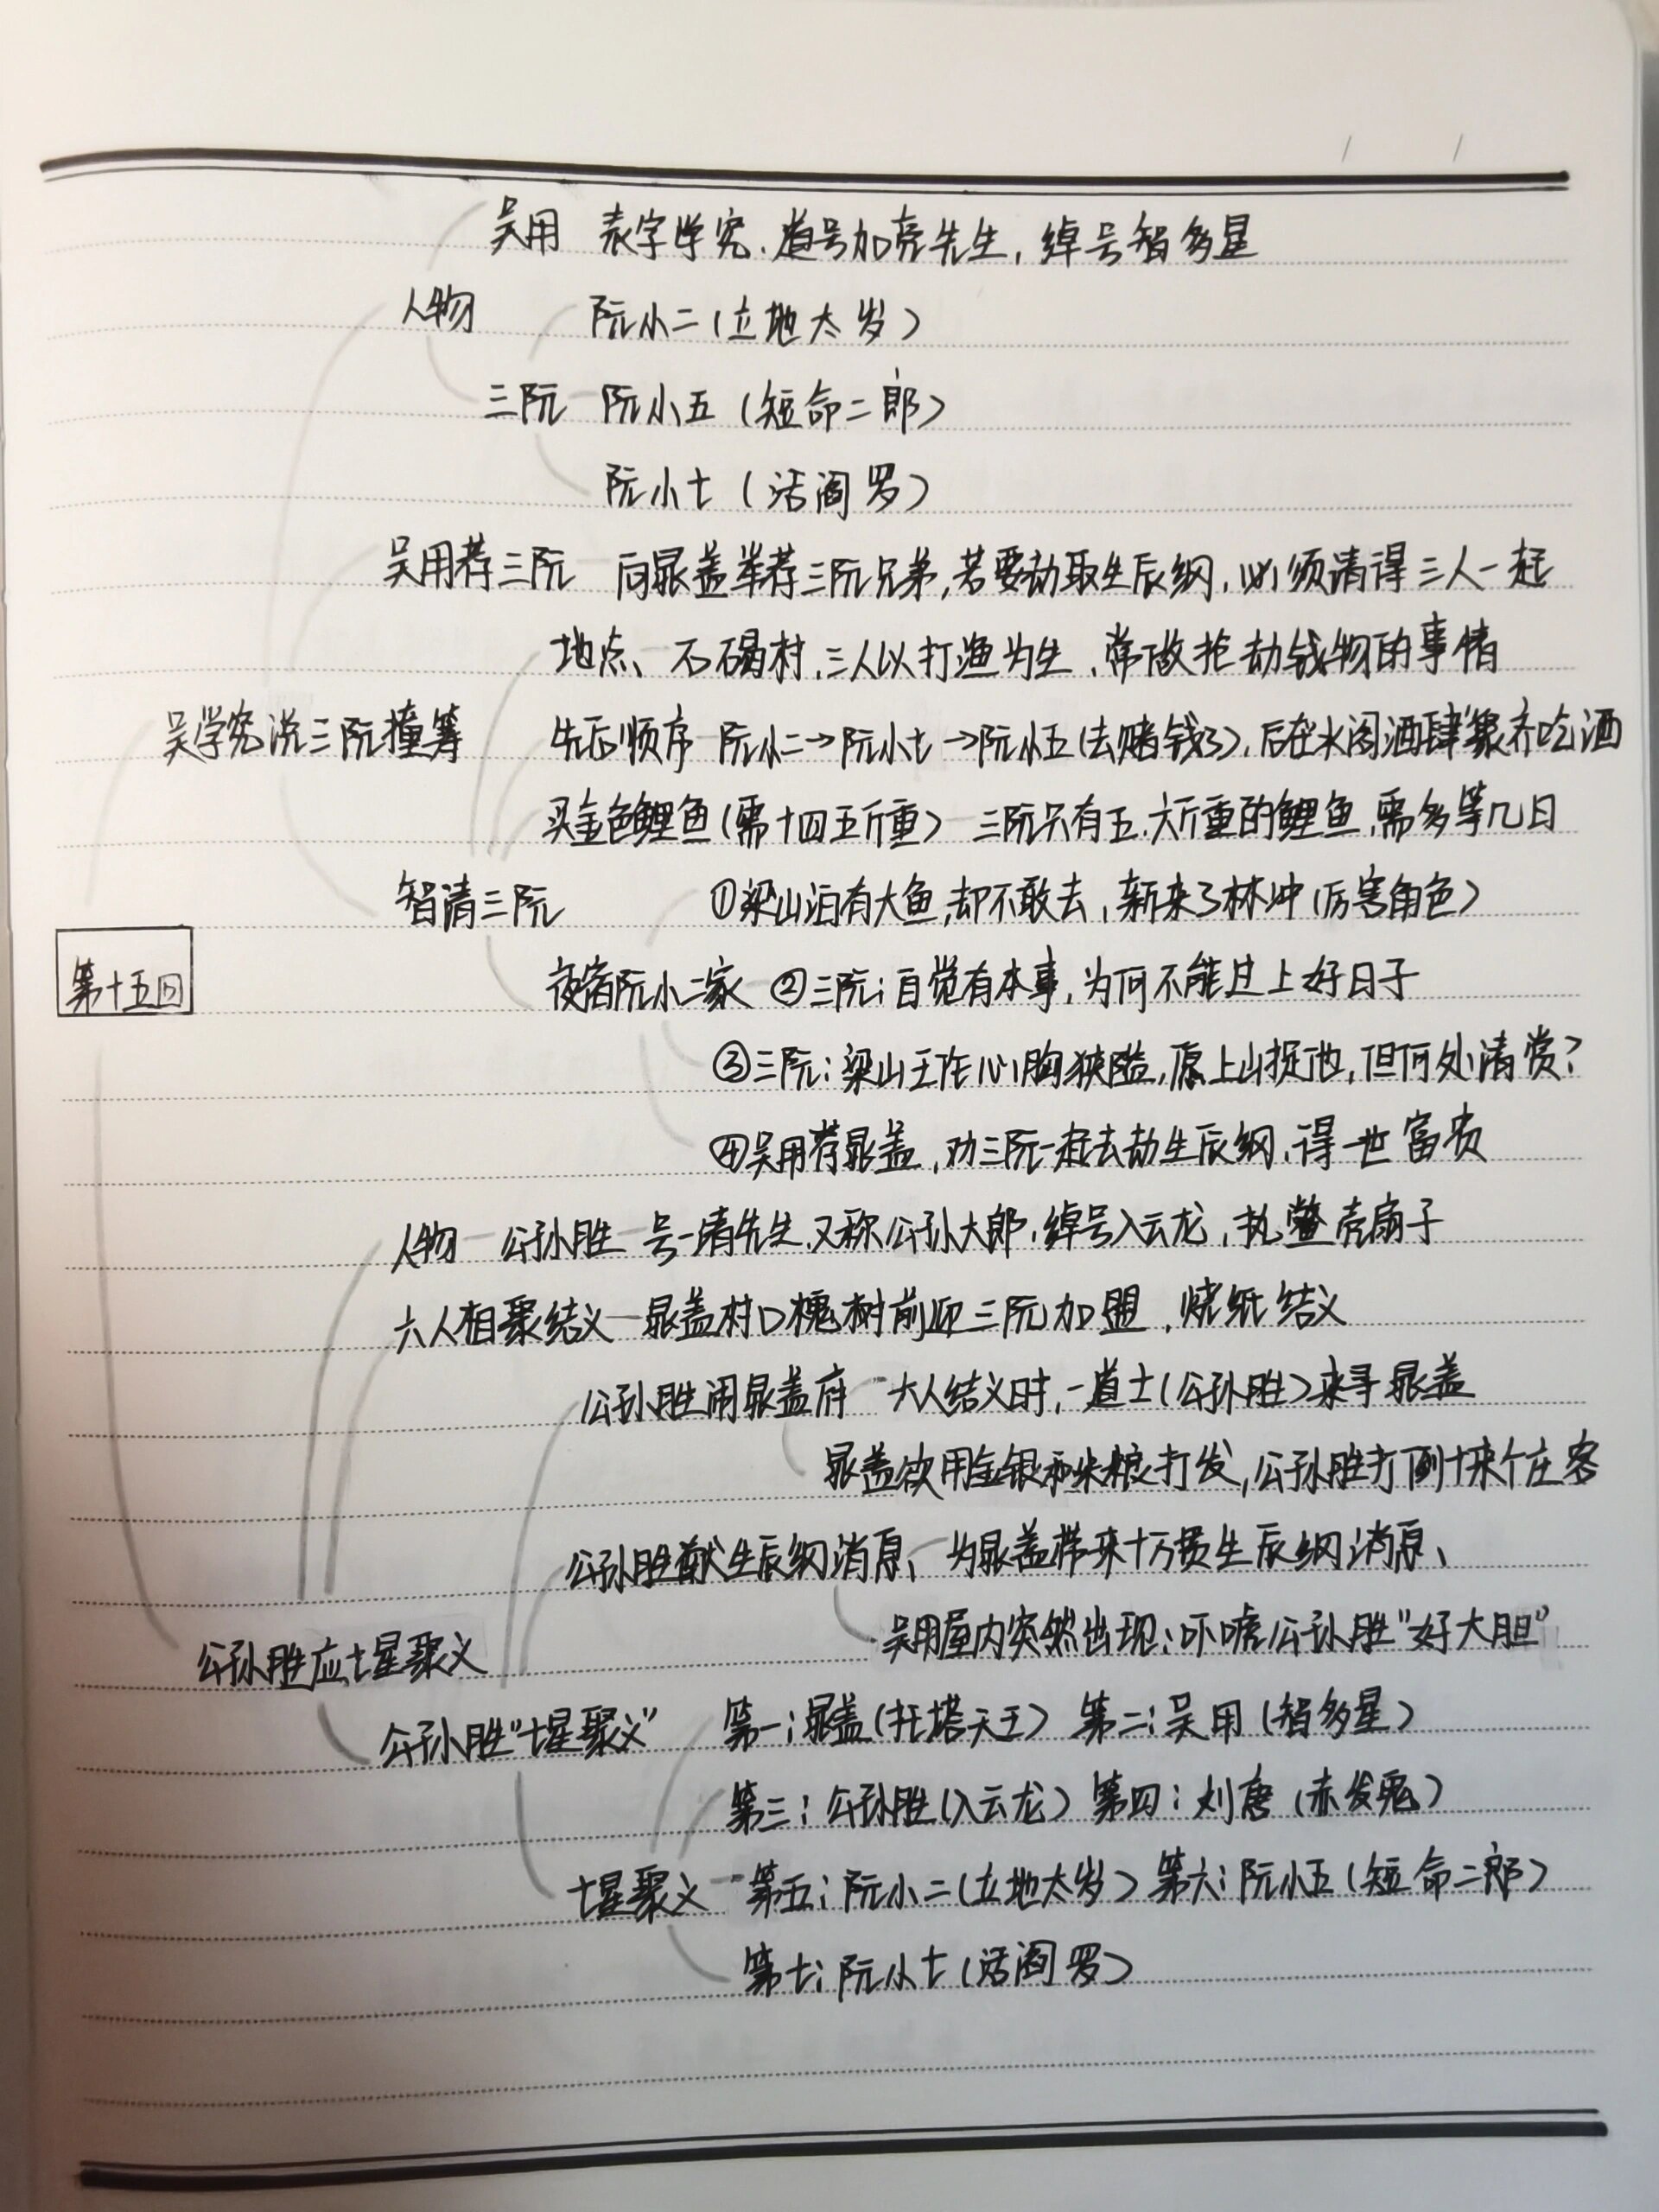 吴用 表字学究、道号加亮先生，绰号智多星
人物 阮小二（立地太岁）
三阮 阮小五（短命二郎）
阮小七（活阎罗）
吴用荐三阮 向晁盖举荐三阮兄弟，若要劫取生辰纲，必须请得三人一起
地点、石碣村，三人以打渔为生，常做抢劫钱物的事情
吴学究说三阮撞筹 先后顺序 阮小二→阮小七→阮小五（去赌钱了），后在水阁酒肆聚齐吃酒
买金色鲤鱼（需十四五斤重） 三阮只有五、六斤重的鲤鱼，需多等几日
智请三阮 ①梁山泊有大鱼，却不敢去，新来了林冲（厉害角色）
第十五回 夜宿阮小二家 ②三阮：自觉有本事，为何不能过上好日子
③三阮：梁山王伦心胸狭隘，愿上山捉他，但何处请赏？
④吴用荐晁盖，劝三阮一起去劫生辰纲，得一世富贵
人物 公孙胜 号一清先生，又称公孙大郎，绰号入云龙，执鳖壳扇子
六人相聚结义 晁盖村口槐树前迎三阮加盟，烧纸结义
公孙胜闹晁盖府 六人结义时，一道士（公孙胜）来寻晁盖
晁盖欲用金银和米粮打发，公孙胜打倒十来个庄客
公孙胜献生辰纲消息、为晁盖带来十万贯生辰纲消息、
吴用屋内突然出现：吓唬公孙胜"好大胆"
公孙胜应七星聚义
公孙胜"七星聚义" 第一：晁盖（托塔天王） 第二：吴用（智多星）
第三：公孙胜（入云龙） 第四：刘唐（赤发鬼）
七星聚义 第五：阮小二（立地太岁） 第六：阮小五（短命二郎）
第七：阮小七（活阎罗）